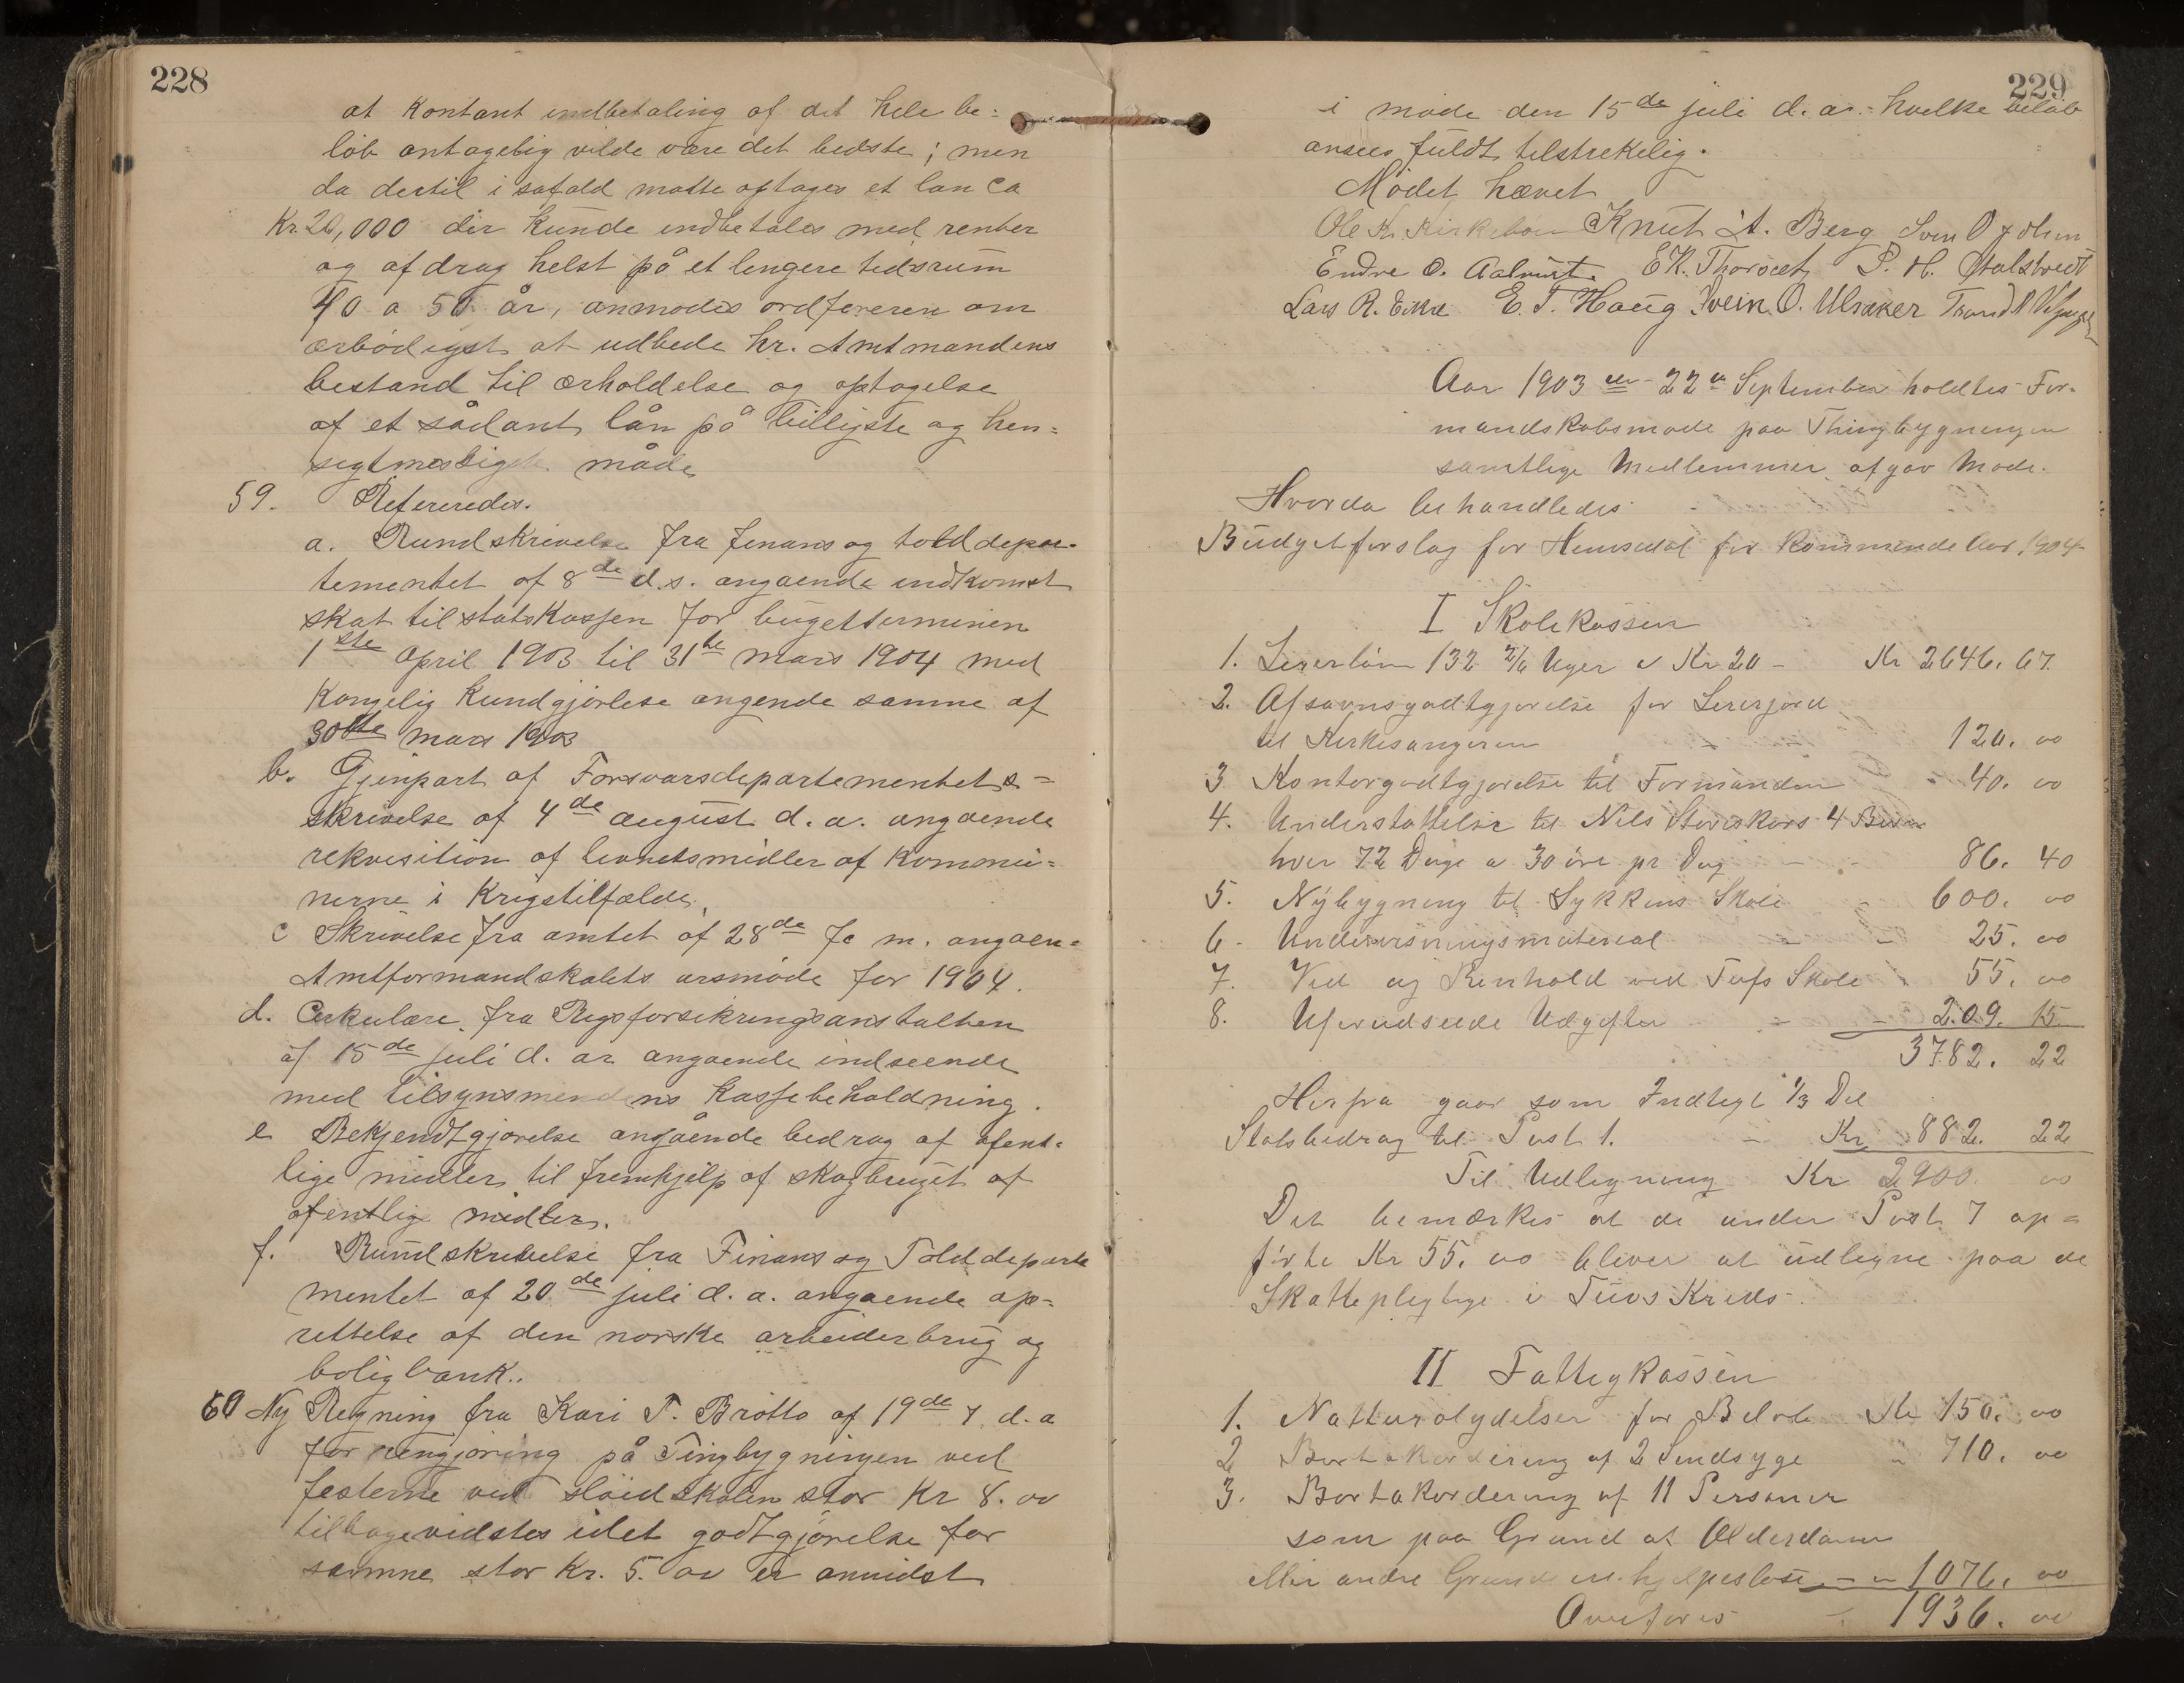 228
at kontant indbetaling af det hele be=
löb antagelig vilde være det bedste; men
da dertil i safald matte optages et lan ca
Kr. 20,000 der kunde indbetales med renter
og afdrag helst på et lengere tidsrum
40 a 50 år, anmodes ordföreren om
ærbödigst at udbede hr. Amtmandens
bestand til ærholdelse og optagelse
af et sådant lån på billigste og hen=
sigtmessigste måde
59. Refereredes.
a. Rundskrivelse fra finans og told depar-
tementet af 8de d.s. angaende indkomst
skat til statskassen for bugetterminen
1ste April 1903 til 31te mars 1904 med
kongelig kundgjörlese angende samme af
30tte mars 1903
b. Gjenpart af Forsvarsdepartementets=
skrivelse af 4de august d.a. angaende
rekvisition af levnetsmidler af kommu=
nerne i Krigstilfælde.
c Skrivelse fra amtet af 28de f m. angaen=
Amtformandskabets arsmöde for 1904.
d. Cirkulære fra Rigsforsikringsanstalten
af 15de juli d. ar angaende indseende
med tilsynsmendens kassebeholdning.
e Bekjendtgjörelse angående bedrag af ofent=
lige midler til fremhjelp af skogbruget af
ofentlige midler.
f. Rundskrivelse fra Finans og Told departe
mentet af 20de juli d.a. angaende op=
rettelse af den norske arbeiderbrug og
boligbank..
60 Ny Regning fra Kari T. Brötto af 19de 7 d.a
for rengjöring på Tingbygningen ved
festerne ved slöidskolen stor Kr 8.00
tilbagevidstes idet godtgjörelse for
samme stor Kr. 5.00 er anvidst
229
i möde den 15de juli d. ar. hvilke belöb
ansees fuldt tilstrekelig.
Mödet hævet
Ole Kr. Kirkeboen Knut A. Berg Sven O
Endre O. E K. P. H.
Lars R. Eikre E. T. Haug Svein O. Ulsaker Trond
Aar 1903 den 22de September holdtes For-
mandskabsmöde paa Thingbygningen
samtlige Medlemmer afgav Möde.
Hvorda behandledes
Budgetforslag for Hemsedal for kommende Aar 1904
I Skolekassen
1. Lererlön 132 2/6 Uger a Kr 20 - Kr 2646. 67.
2. Afsavnsgodtgjörelse for Lererjord
til Kirkesangeren 120. 00
3 Kontorgodtgjörelse til Formanden - 40. 00
4. Understöttelse til Nils 4 Börn
hver 72 Dage a 30 öre pr Dag - - 86. 40
5. Nybygning til Lykkens Skole 600. 00
6 - Undervisningsmaterial - - 25. 00
7. Ved og Renhold ved Tufs Skole - 55. 00
8. Uforudseede Udgifter - - 209. 15
3782. 22
Herfra gaar som Indtegt 1/3 Del
Statsbedrag til Post 1. - Kr 882. 22
Til Udligning Kr 2900. 00
Det bemærkes at de under Post 7 op=
förte Kr 55.00 bliver at udligne paa de
Skattepligtige i Tuvs Kreds
II Fattigkassen
1. Naturalydelser for Belöb Kr 150. 00
2 Bortakordering af 2 Sindsyge " 710. 00
3. Bortakordering af 11 Personer
som paa Grund af Alderdom
eller andre Grunde er hjelpeslöse - " 1076. 00
Overföres - 1936. 00